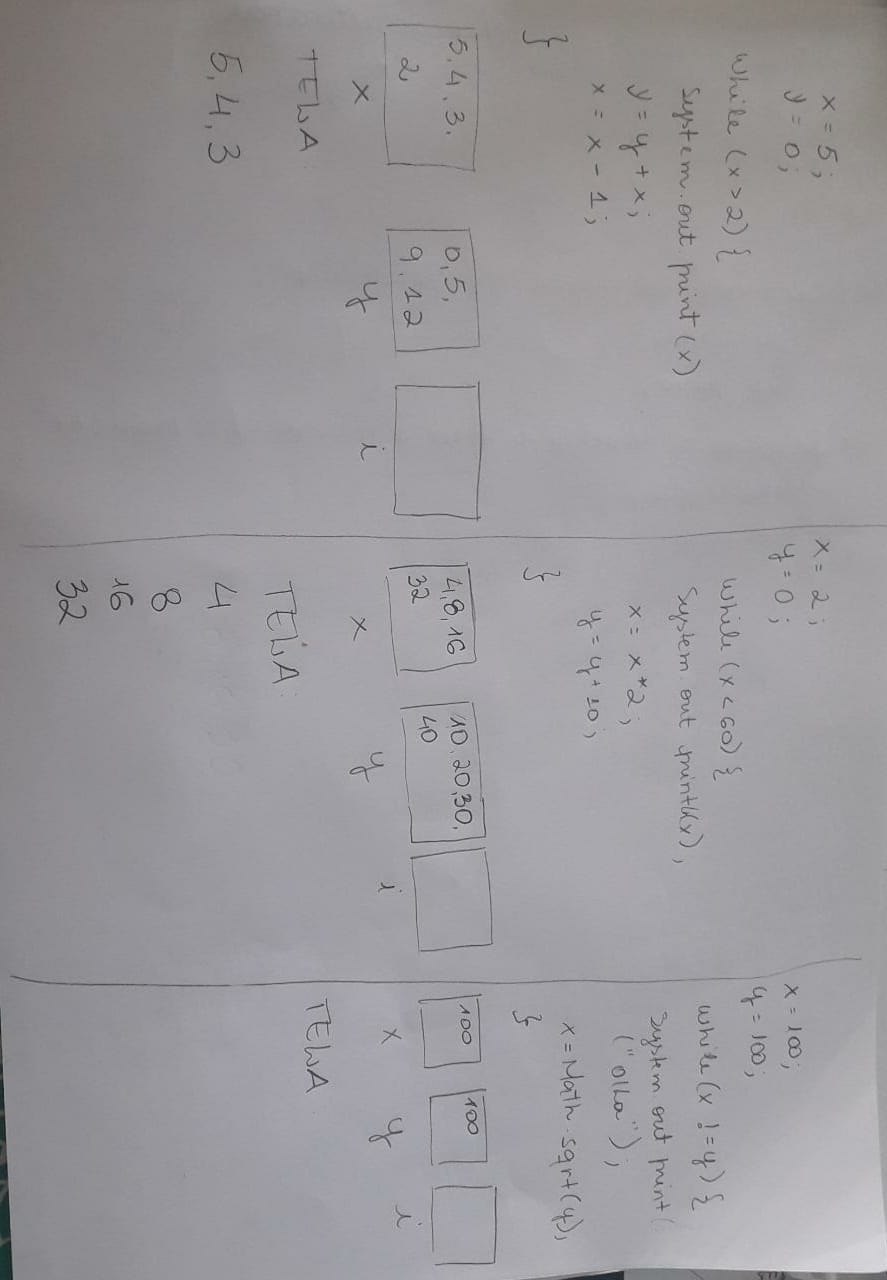 x = 5;
y = 0;
while (x > 2) {
system.out.print (x)
y = y + x;
x = x - 1;
}
5, 4, 3.
2
0, 5,
9, 12
x
y
i
TELA:
5, 4, 3
x = 2;
y = 0;
while (x < 60) {
system out println(x),
x = x * 2;
y = y + 10;
}
4, 8, 16
32
10, 20, 30,
40
x
y
i
TELA:
4
8
16
32
x = 100;
y = 100;
while (x != y) {
system out print (
("olha");
x = Math.sqrt(y),
}
100
100
x
y
i
TELA